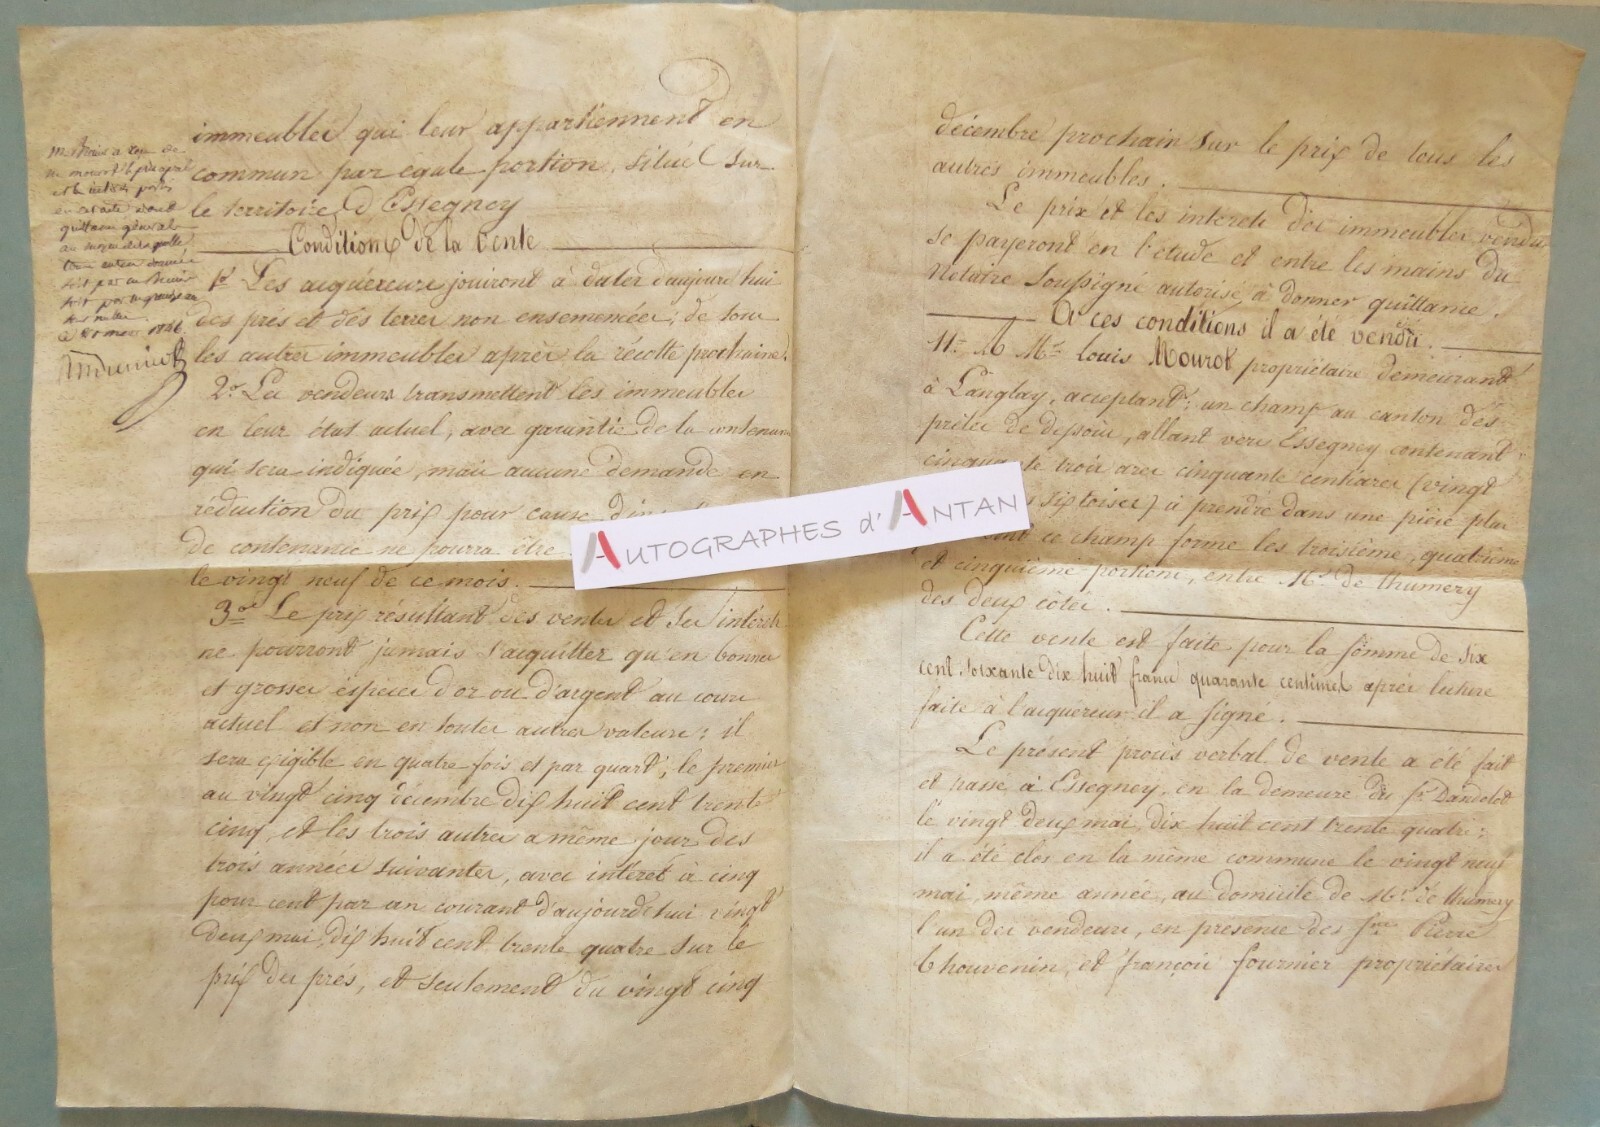 immeubles qui leur appartiennent en
commun par egale portion, situés sur
le territoire d'Essegney
Conditions de la vente
1º Les acquéreurs jouiront à dater d'aujourd'hui
des prés et des terres non ensemencées; de tous
les autres immeubles après la récolte prochaine.
2º Les vendeurs transmettent les immeubles
en leur état actuel, avec garantie de la contenance
qui sera indiquée, mais aucune demande en
réduction du prix pour cause
de contenance ne pourra être
le vingt neuf de ce mois.
3º Le prix résultant des ventes et ses intérêts
ne pourront jamais s'acquitter qu'en bonnes
et grosses espèces d'or ou d'argent au cours
actuel et non en toutes autres valeurs; il
sera exigible en quatre fois et par quart; le premier
au vingt cinq décembre dix huit cent trente
cinq, et les trois autres a même jour des
trois années suivantes, avec intérêt à cinq
pour cent par an courant d'aujourdehui vingt
deux mai, dix huit cent trente quatre sur le
prix des prés, et seulement du vingt cinq
quittance général
soit par
21 mars 1846
AUTOGRAPHES d'ANTAN
décembre prochain sur le prix de tous les
autres immeubles.
Le prix et les intérêts des immeubles vendus
se payeront en l'étude et entre les mains du
Notaire Soussigné autorisé à donner quittance.
A ces conditions il a été vendu.
11º M Mr Louis Mourot propriétaire demeurant
à Langley, acceptant; un champ au canton des
allant vers Essegney contenant
cinquante trois ares cinquante centiares (vingt
six toises) à prendre dans une pièce plus
ce champ forme les troisième, quatrième
et cinquième portions, entre Mr de thumery
des deux côtés.
Cette vente est faite pour la somme de six
cent soixante dix huit francs quarante centimes après lecture
faite à l'acquéreur il a signé.
Le présent procès verbal de vente a été fait
et passé à Essegney, en la demeure du Sr Dandelot
le vingt deux mai, dix huit cent trente quatre;
il a été clos en la même commune le vingt neuf
mai, même année, au domicile de Mr de thumery
l'un des vendeurs, en présence des Srs Pierre
Thouvenin, et françois fournier propriétaires